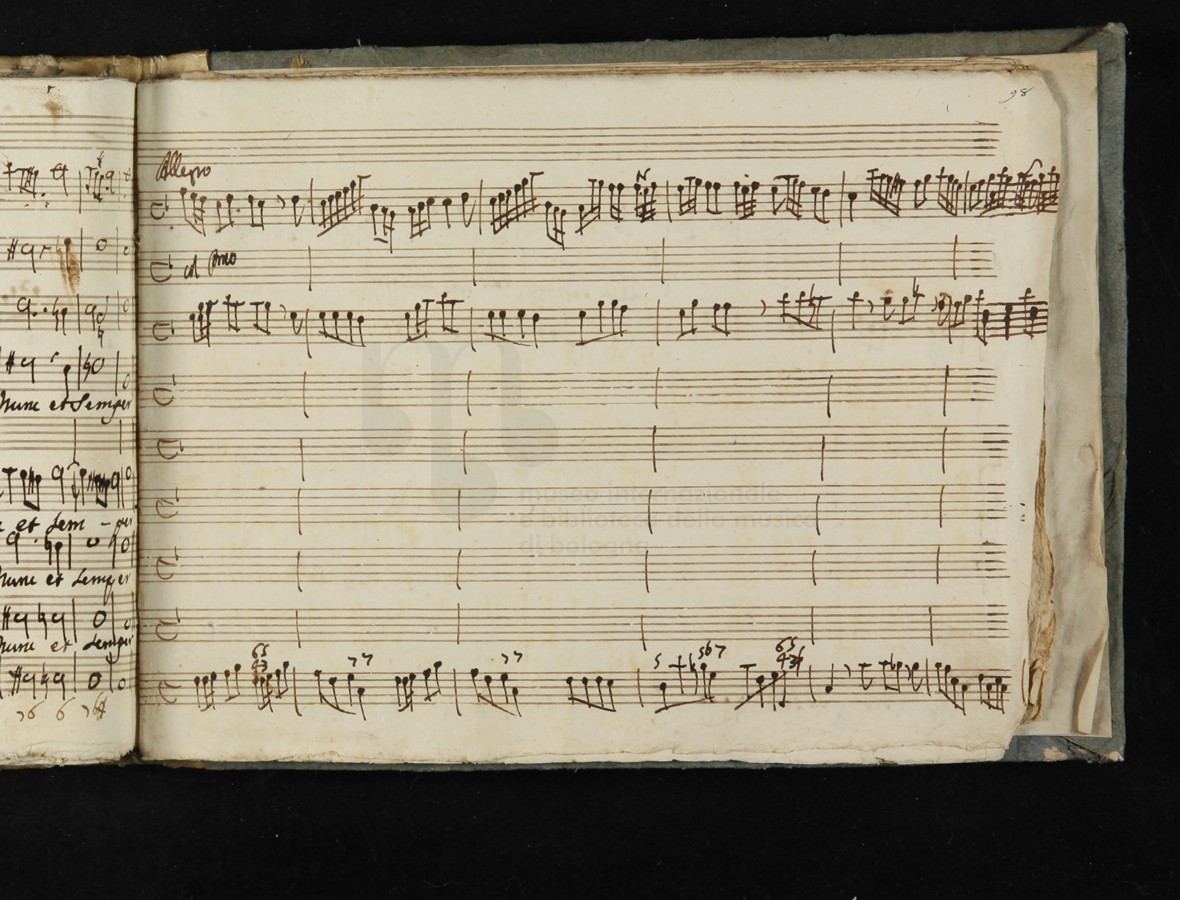 98
Allegro
col Pmo
Nunc et Semper
museo internazionale
e biblioteca della musica
di bologna
et Sem - per
Nunc et Semper
Nunc et Semper
65
43
77
77
5
567
65
43
76 6 76